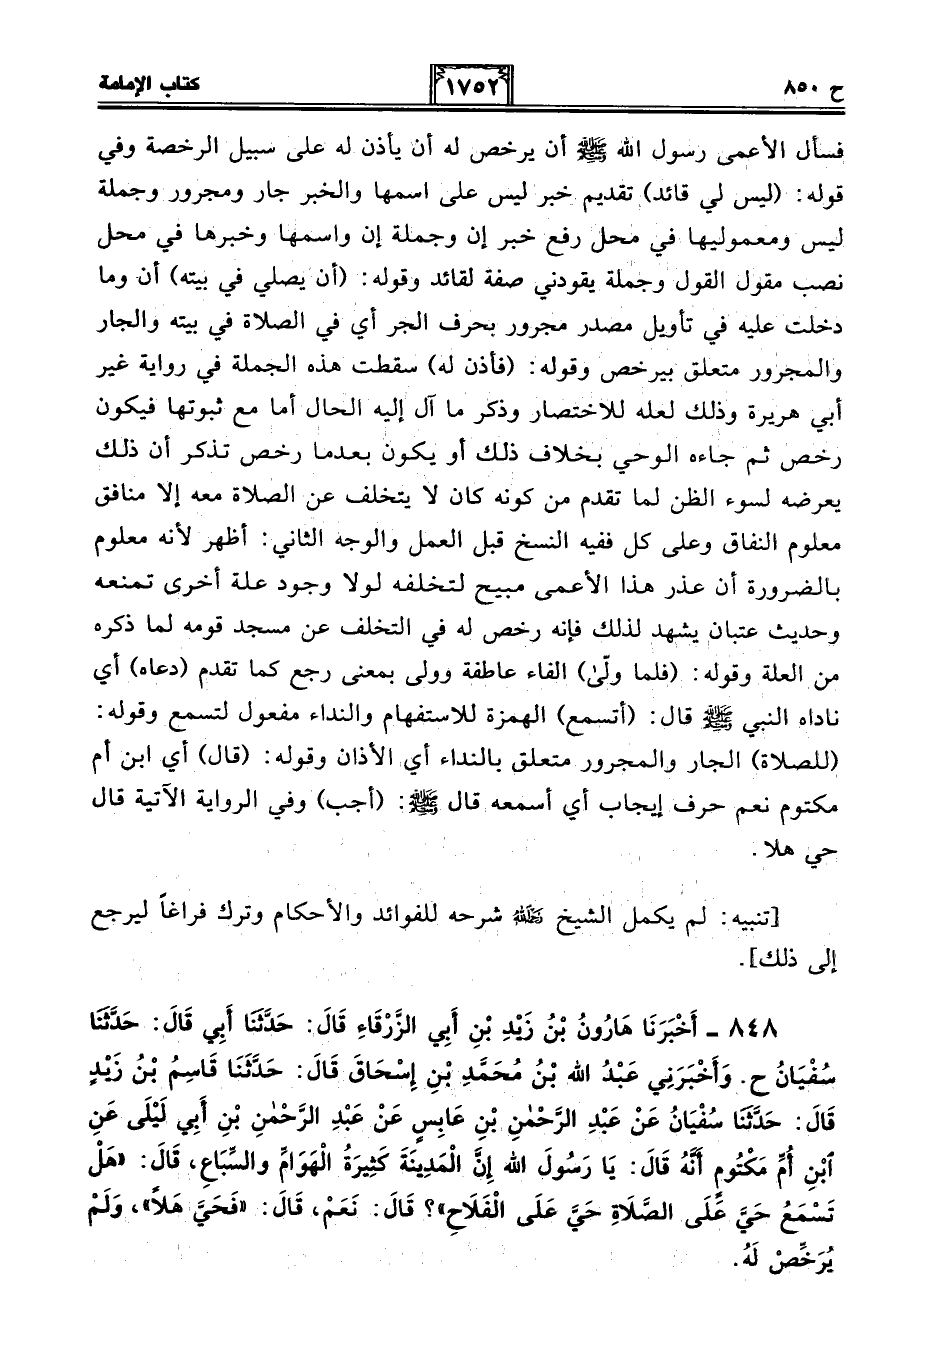 ح ٨٥٠
١٧٥٢
كتاب الإمامة
فسأل الأعمى رسول الله ﷺ أن يرخص له أن يأذن له على سبيل الرخصة وفي
قوله: (ليس لي قائد) تقديم خبر ليس على اسمها والخبر جار ومجرور وجملة
ليس ومعموليها في محل رفع خبر إن وجملة إن واسمها وخبرها في محل
نصب مقول القول وجملة يقودني صفة لقائد وقوله: (أن يصلي في بيته) أن وما
دخلت عليه في تأويل مصدر مجرور بحرف الجر أي في الصلاة في بيته والجار
والمجرور متعلق بيرخص وقوله: (فأذن له) سقطت هذه الجملة في رواية غير
أبي هريرة وذلك لعله للاختصار وذكر ما آل إليه الحال أما مع ثبوتها فيكون
رخص ثم جاءه الوحي بخلاف ذلك أو يكون بعدما رخص تذكر أن ذلك
يعرضه لسوء الظن لما تقدم من كونه كان لا يتخلف عن الصلاة معه إلا منافق
معلوم النفاق وعلى كل ففيه النسخ قبل العمل والوجه الثاني: أظهر لأنه معلوم
بالضرورة أن عذر هذا الأعمى مبيح لتخلفه لولا وجود علة أخرى تمنعه
وحديث عتبان يشهد لذلك فإنه رخص له في التخلف عن مسجد قومه لما ذكره
من العلة وقوله: (فلما ولّىٰ) الفاء عاطفة وولى بمعنى رجع كما تقدم (دعاه) أي
ناداه النبي ﷺ قال: (أتسمع) الهمزة للاستفهام والنداء مفعول لتسمع وقوله:
(للصلاة) الجار والمجرور متعلق بالنداء أي الأذان وقوله: (قال) أي ابن أم
مكتوم نعم حرف إيجاب أي أسمعه قال ﷺ: (أجب) وفي الرواية الآتية قال
حي هلا.
[تنبيه: لم يكمل الشيخ رحمه الله شرحه للفوائد والأحكام وترك فراغاً ليرجع
إلى ذلك].
٨٤٨ ـ أَخْبَرَنَا هَارُونُ بْنُ زَيْدِ بْنِ أَبِي الزَّرْقَاءِ قَالَ: حَدَّثَنَا أَبِي قَالَ: حَدَّثَنَا
سُفْيَانُ ح. وَأَخْبَرَنِي عَبْدُ الله بْنُ مُحَمَّدِ بْنِ إِسْحَاقَ قَالَ: حَدَّثَنَا قَاسِمُ بْنُ زَيْدٍ
قَالَ: حَدَّثَنَا سُفْيَانُ عَنْ عَبْدِ الرَّحْمٰنِ بْنِ عَابِسٍ عَنْ عَبْدِ الرَّحْمٰنِ بْنِ أَبِي لَيْلَى عَنِ
ٱبْنِ أُمِّ مَكْتُومٍ أَنَّهُ قَالَ: يَا رَسُولَ الله إِنَّ الْمَدِينَةَ كَثِيرَةُ الْهَوَامِّ والسِّبَاعِ، قَالَ: «هَلْ
تَسْمَعُ حَيَّ عَلَى الصَّلَاةِ حَيَّ عَلَى الْفَلَاحِ»؟ قَالَ: نَعَمْ، قَالَ: «فَحَيَّ هَلاً»، وَلَمْ
يُرَخِّصْ لَهُ.